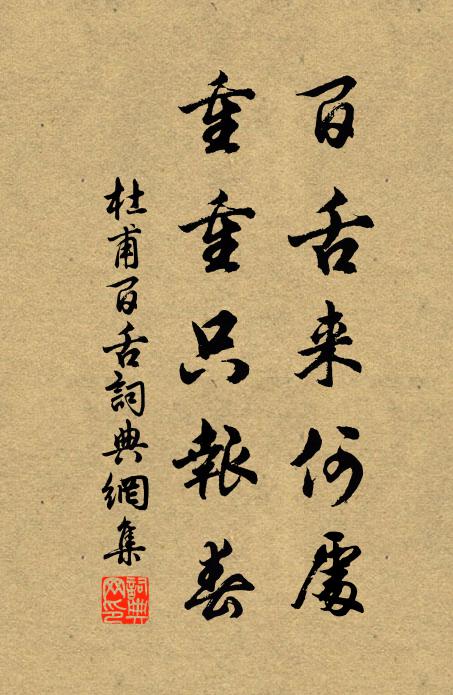 百舌来何處
重重只報春
杜甫百舌詞典網集
詞典网印